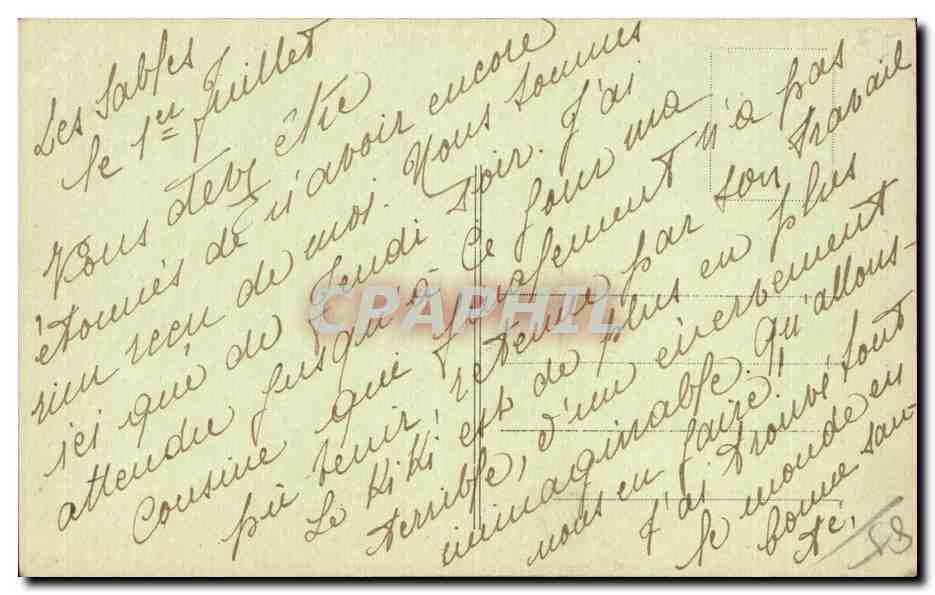 Les Sables
le 1er Juillet
Vous devez être
étonnés de n'avoir encore
rien reçu de moi. Nous sommes
ici que de Jendi soir. J'ai
attendu jusqu'à ce jour ma
Cousine qui finalement n'a pas
pu venir, retenue par son travail
Le Kiki est de plus en plus
terrible, d'un énervement
inimaginable. Qu'allons-
nous en faire!
J'ai trouvé tout
le monde en
bonne san-
té,
88
CPAPHIL